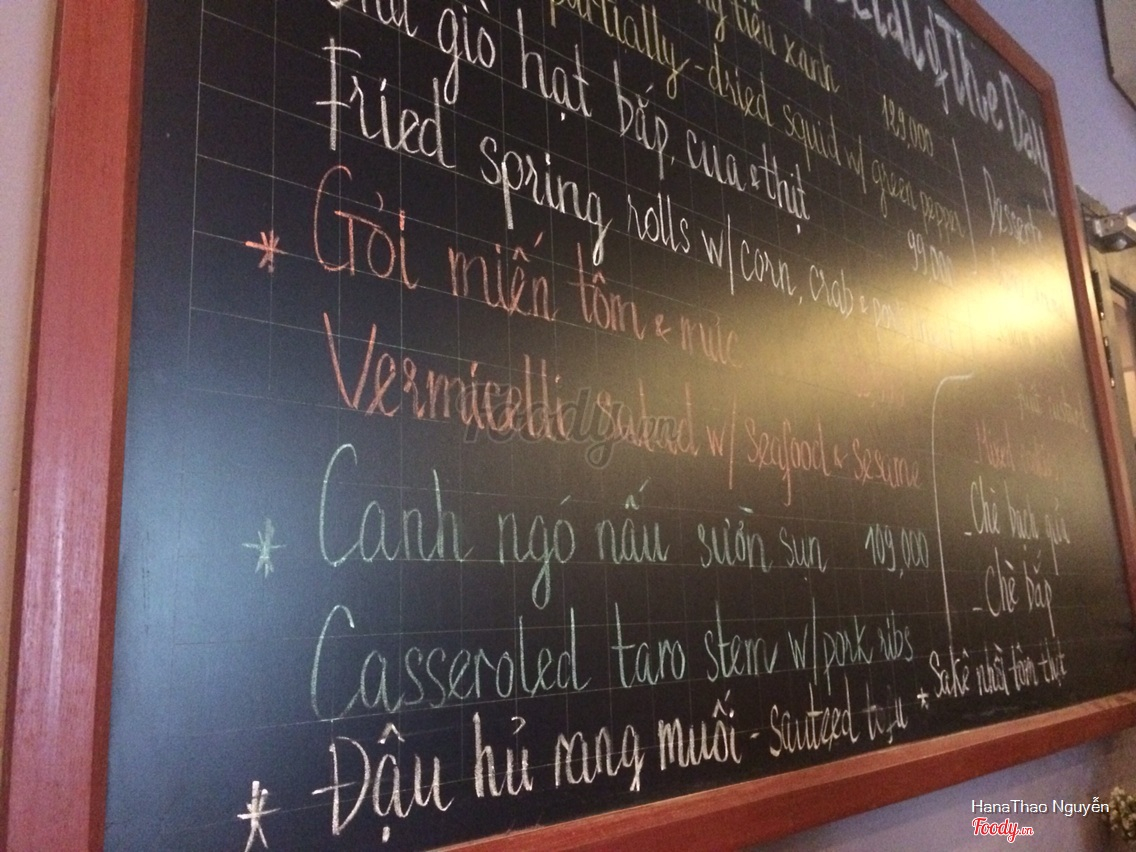 Special of The Day
tiêu xanh 189,000
partially-dried squid w/ green pepper
Chả giò hạt bắp, cua & thịt 99,000
Fried spring rolls w/ corn, crab &
* Gỏi miến tôm & mực
Vermicelli salad w/ seafood & sesame
* Canh ngó nấu sườn sụn 109,000
Casseroled taro stem w/ pork ribs
* Đậu hủ rang muối - sauteed tofu
Desserts
Mixed
- Chè bạch quả
- Chè bắp
* Sakê nhồi tôm thịt
Foody.vn
HanaThao Nguyễn
Foody.vn